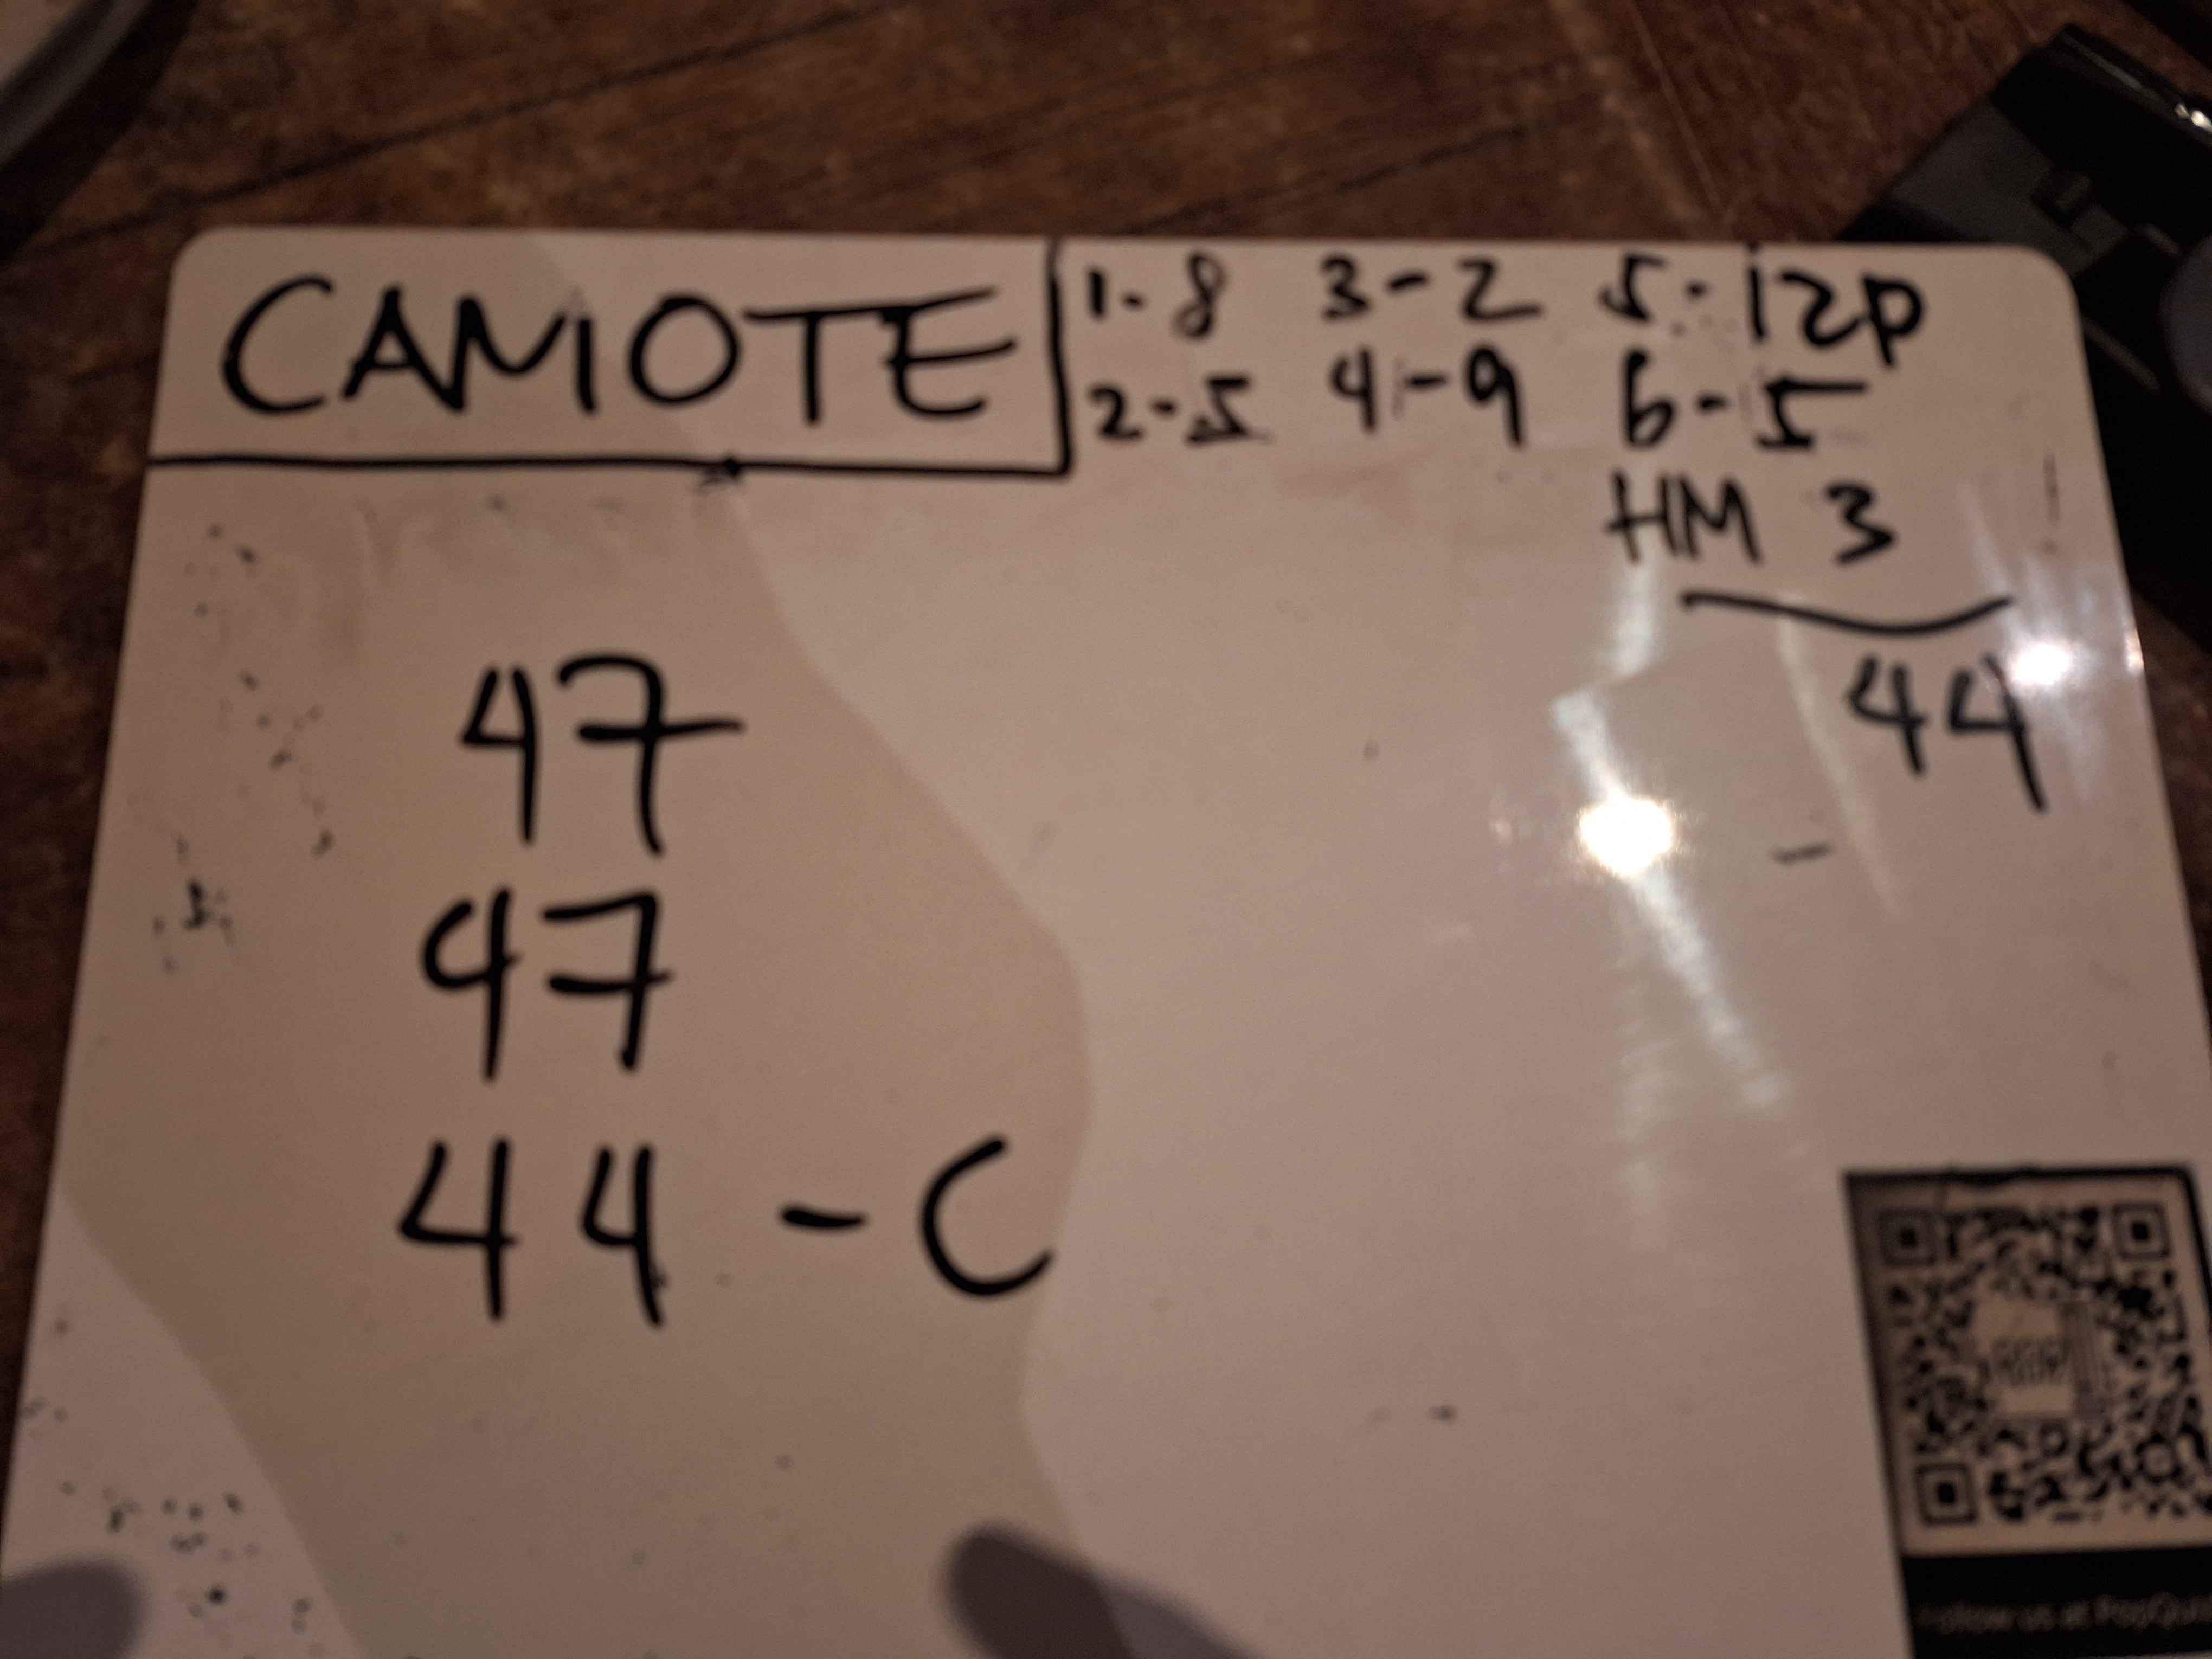 CAMOTE
1-8 3-2 5-12P
2-5 4-9 6-5
HM 3
44
47
47
44-C
Follow us at PopQuiz